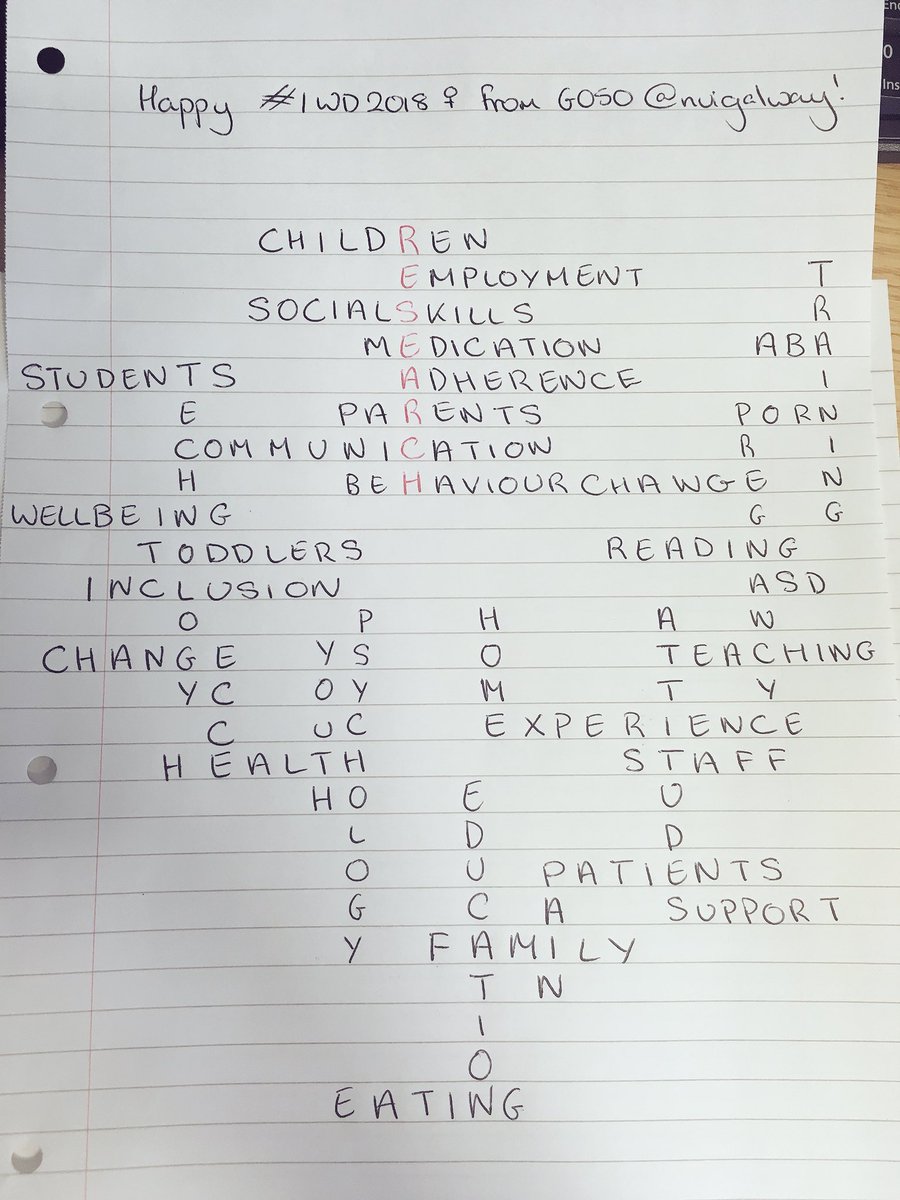 Happy #IWD2018 ♀ from GOSO @nuigalway!
CHILDREN
EMPLOYMENT T
SOCIALSKILLS R
MEDICATION ABA
STUDENTS ADHERENCE I
E PARENTS PORN N
COMMUNICATION R I
H BEHAVIOURCHANGE N
WELLBEING G G
TODDLERS READING
INCLUSION ASD
O P H A W
CHANGE YS O TEACHING
YC OY M T Y
C UC EXPERIENCE
HEALTH STAFF
HO E U
L D D
O U PATIENTS
G C A SUPPORT
Y FAMILY
T N
I
O
EATING
0
Ins